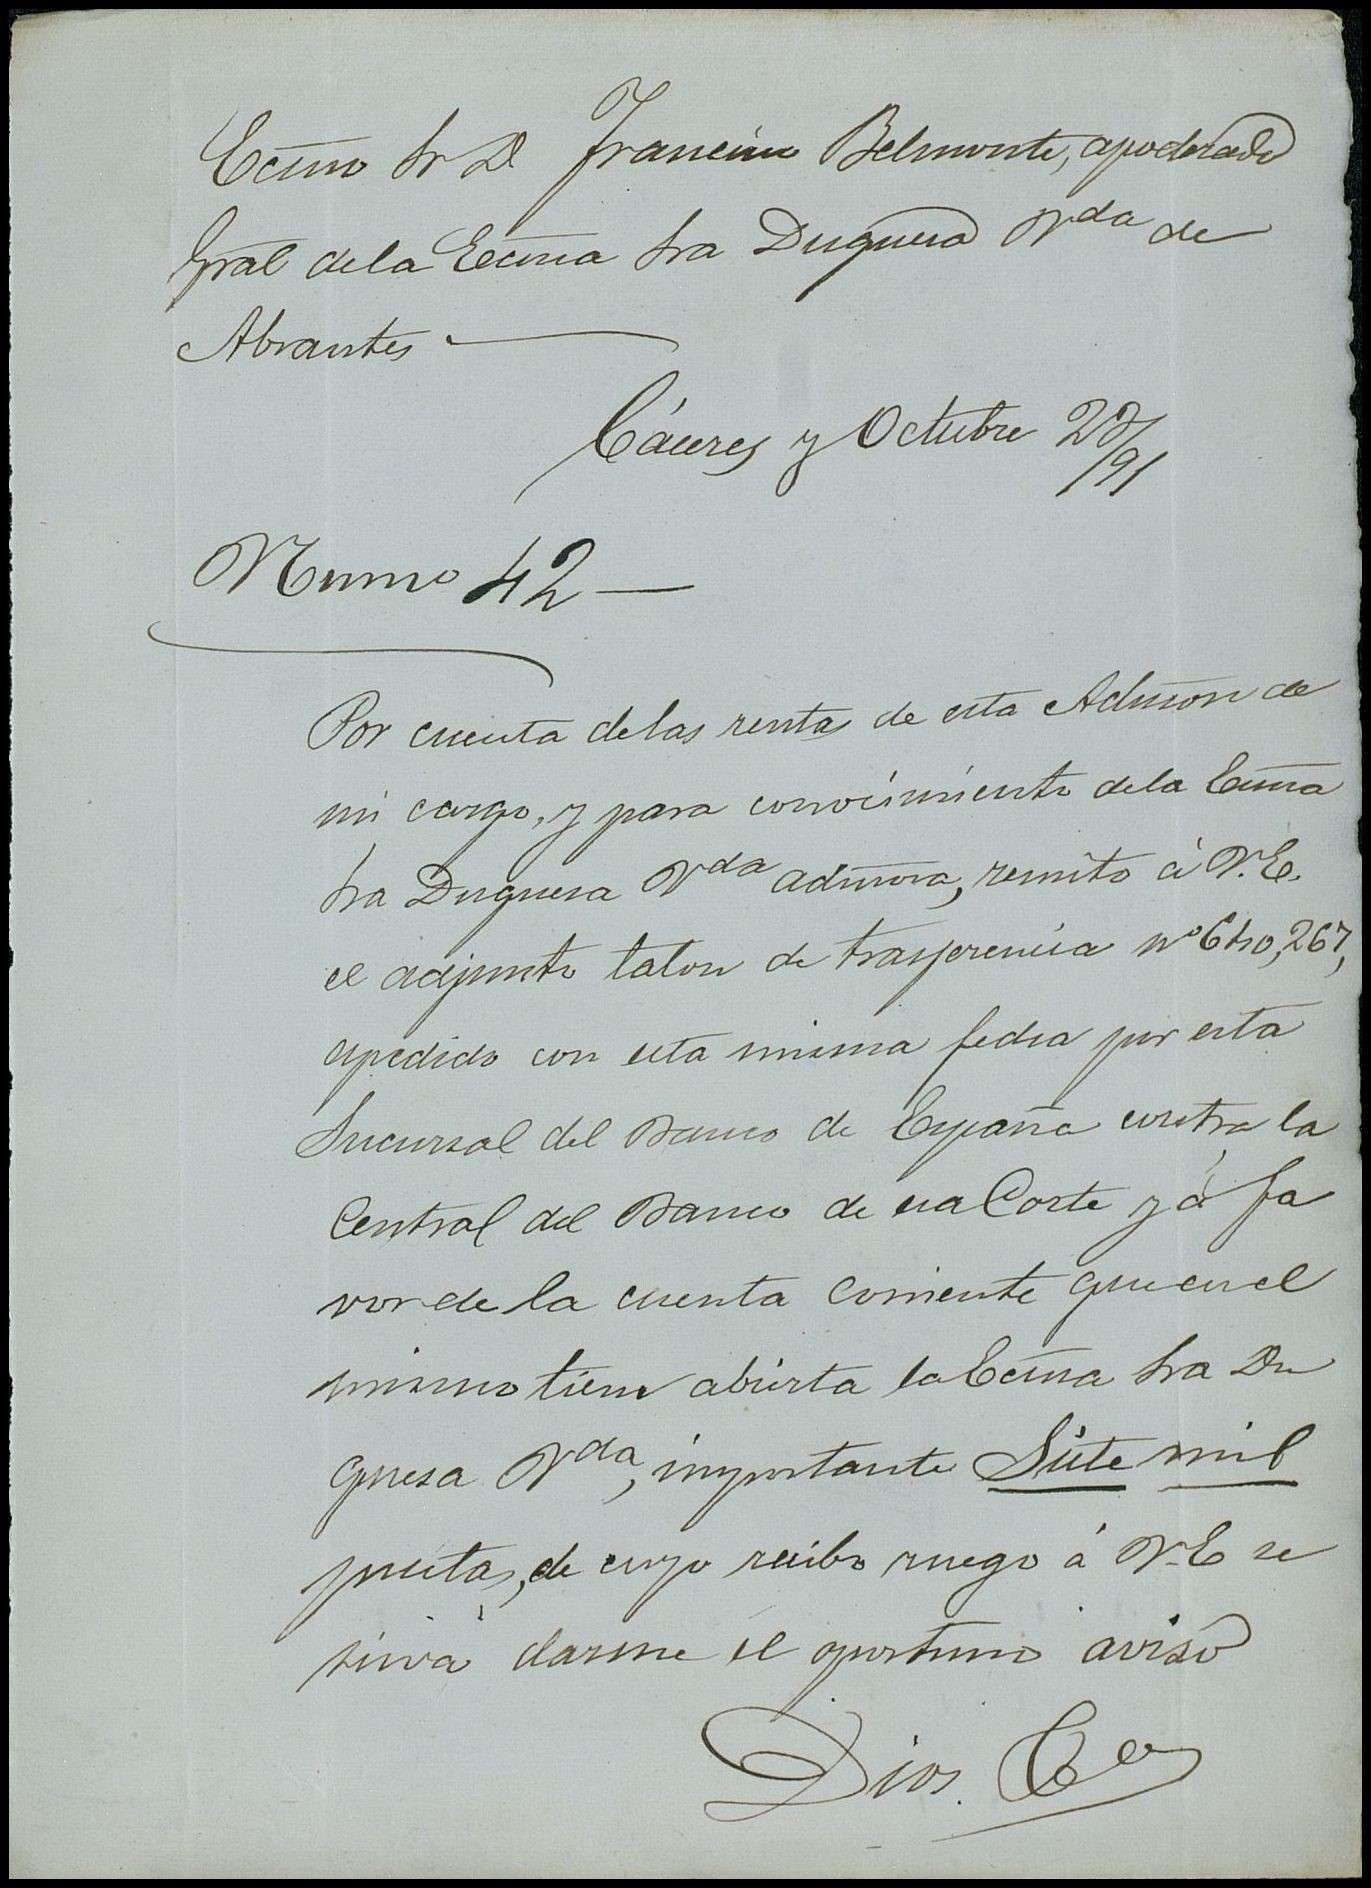 Ecmo Sr D Francisco Belmonte, apoderado
Gral de la Ecma Sra Duquesa Vda de
Abrantes
Cáceres y Octubre 20/91
Numo 42
Por cuenta de las rentas de esta Admon de
mi cargo, y para conocimiento de la Ecma
Sra Duquesa Vda admora, remito á V.E.
el adjunto talon de trasferencia no 640,267,
espedido con esta misma fecha por esta
Sucursal del Banco de España contra la
Central del Banco de esa Corte y á fa
vor de la cuenta corriente que en el
mismo tiene abierta la Ecma Sra Du
quesa Vda, importante Siete mil
pesetas, de cuyo recibo ruego á V.E se
sirva darme el oportuno aviso
Dios &a